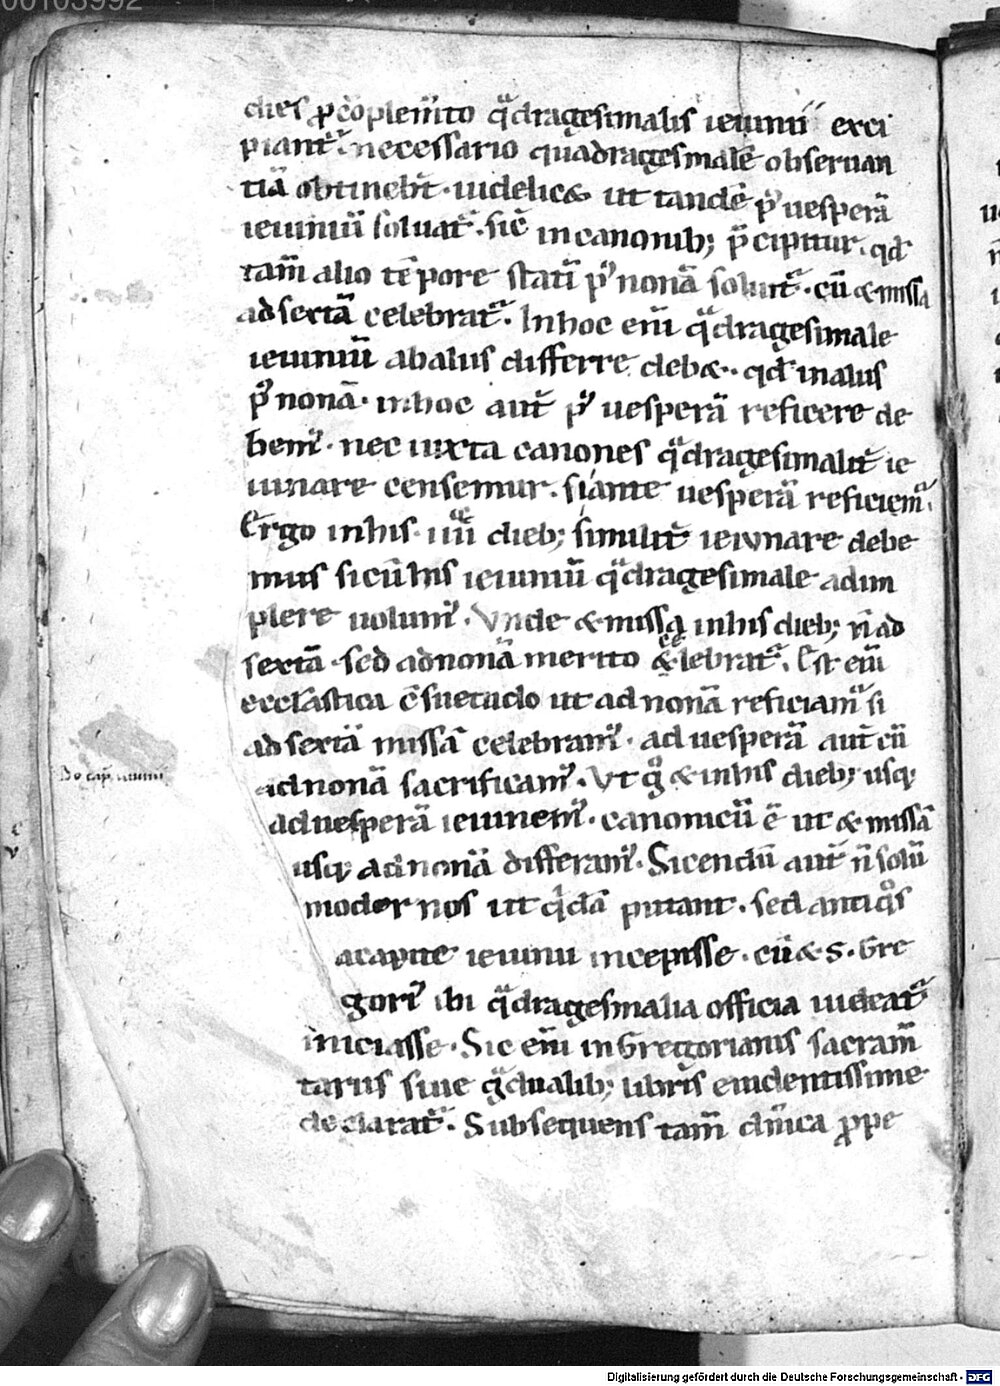 00103992
dies p̱ cōplem̄to qͣdragesimalis ieiunii exci
piant᷑. necessario quadragesimalē obseruan
tiā obtinebt̄. uidelic& ut tandē pꝰ uesperā
ieiuniū soluat᷑. sic̄ in canonib; p̄cipitur. qđ
tam̄ alio tēpore statī pꝰ nonā soluit᷑. cū & missa
ad sextā celebrat᷑. In hoc em̄ qͣdragesimale
ieiuniū ab aliis differre deb&. qđ in aliis
pꝰ nonā. in hoc aut̄ pꝰ uesperā reficere de
bemꝰ. nec iuxta canones qͣdragesimalit̄ ie
iunare censemur. si ante uesperā reficiemᷣ.
Ergo in his. iiii dieb; similit̄ ieiunare debe
mus sicū in his ieiuniū qͣdragesimale adim
plere uolumꝰ. Vnde & missa in his dieb; n̄ ad
sextā. sed ad nonā merito celebrat᷑. Est em̄
eccl̄astica c̄suetudo ut ad nonā reficiamᷣ si
ad sextā missā celebramꝰ. ad uesperā aut̄ cū
ad nonā sacrificamꝰ. Vt gͦ & in his dieb; usq;
Do cap. ieiunii
ad uesperā ieiunemꝰ. canonicū ē ut & missā
usq; ad nonā differamꝰ. Sicendū aut̄ n̄ solū
modernos ut qͥdā putant. sed antiqͦs
a capite ieiunii incepisse. cū & S. Gre
goriꝰ ibi qͣdragesimalia officia uideat᷑
iniciasse. Sic em̄ in Gregorianis sacram̄
tariis siue gͣdualib; libris euidentissime
declarat᷑. Subsequens tam̄ dm̄ica ꝓpe
Digitalisierung gefördert durch die Deutsche Forschungsgemeinschaft - DFG